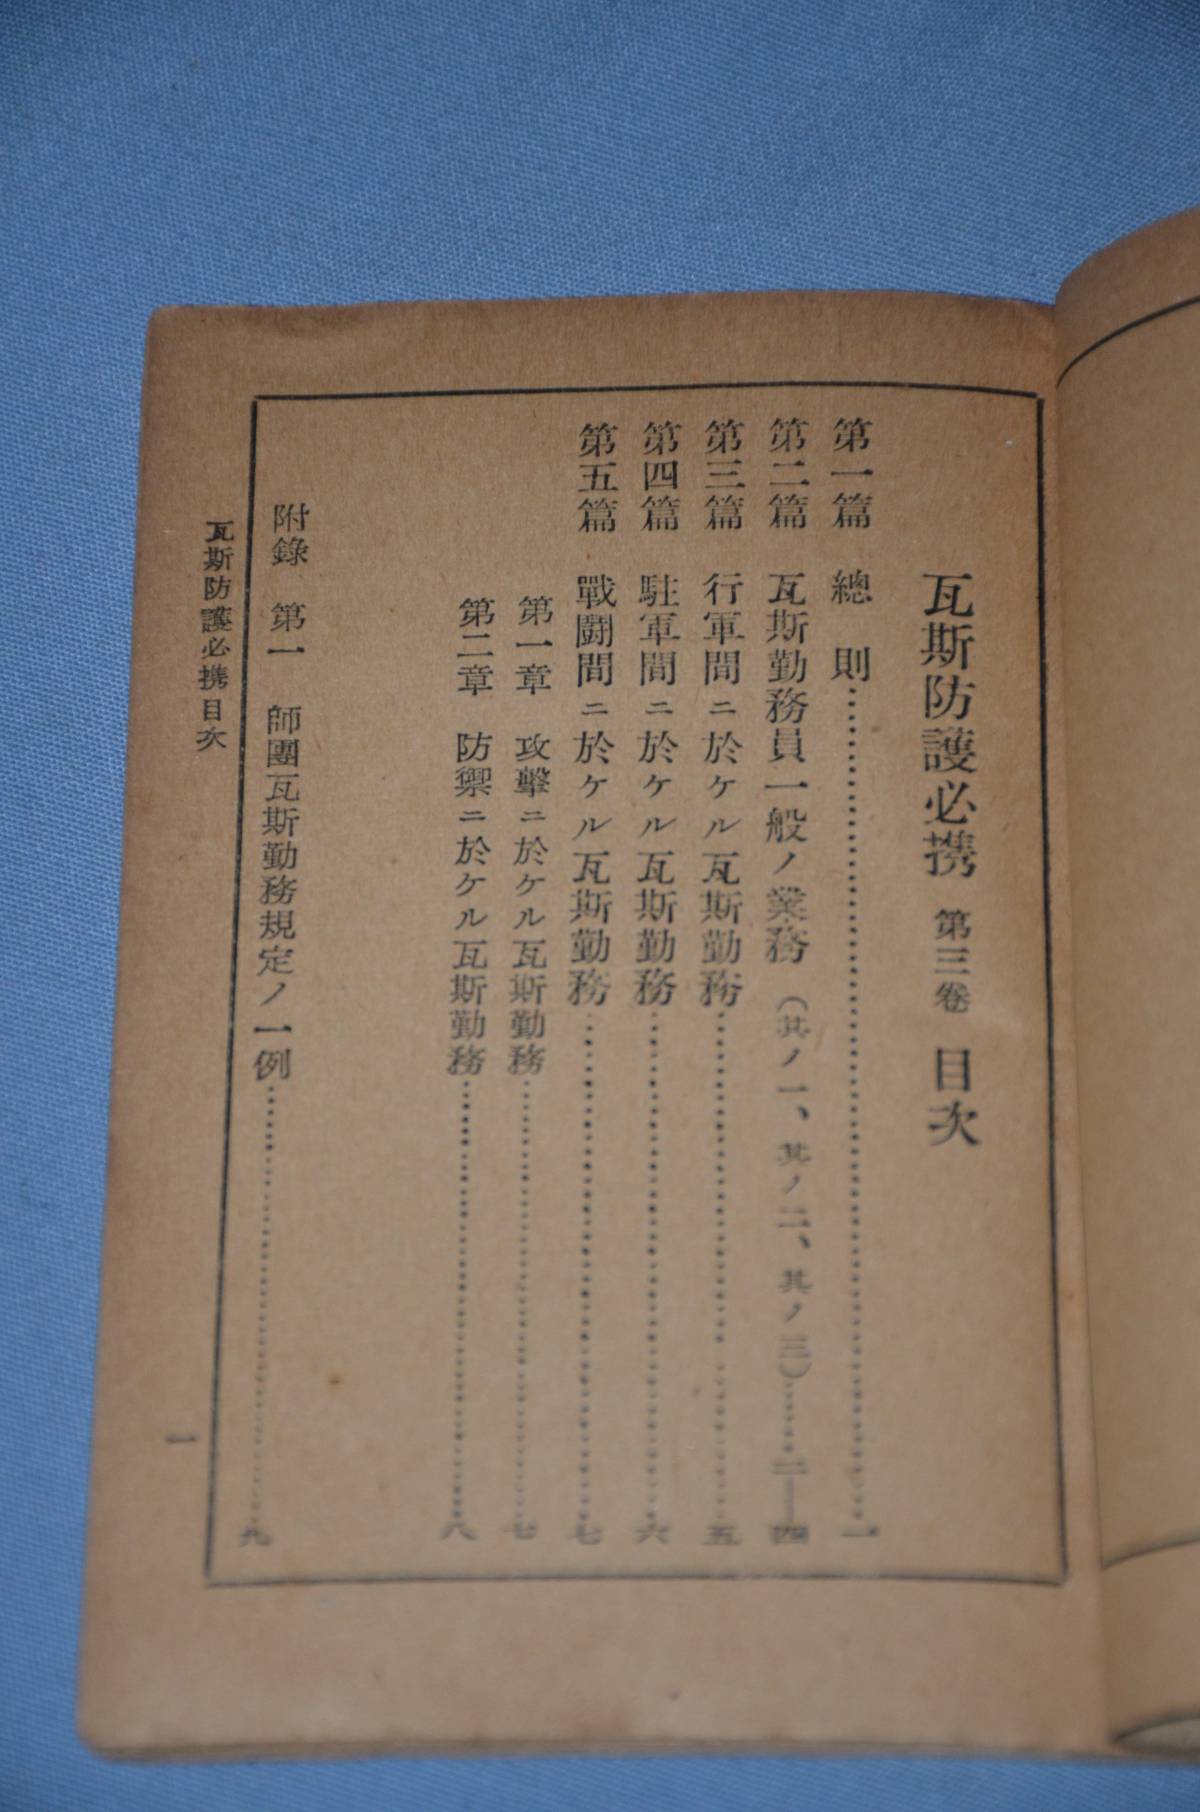 瓦斯防護必携 第三卷 目次
第一篇 總則……一
第二篇 瓦斯勤務員一般ノ業務（其ノ一、其ノ二、其ノ三）……二—四
第三篇 行軍間ニ於ケル瓦斯勤務……五
第四篇 駐軍間ニ於ケル瓦斯勤務……六
第五篇 戰鬪間ニ於ケル瓦斯勤務……七
第一章 攻擊ニ於ケル瓦斯勤務……七
第二章 防禦ニ於ケル瓦斯勤務……八
附錄 第一 師團瓦斯勤務規定ノ一例……九
瓦斯防護必携目次
一